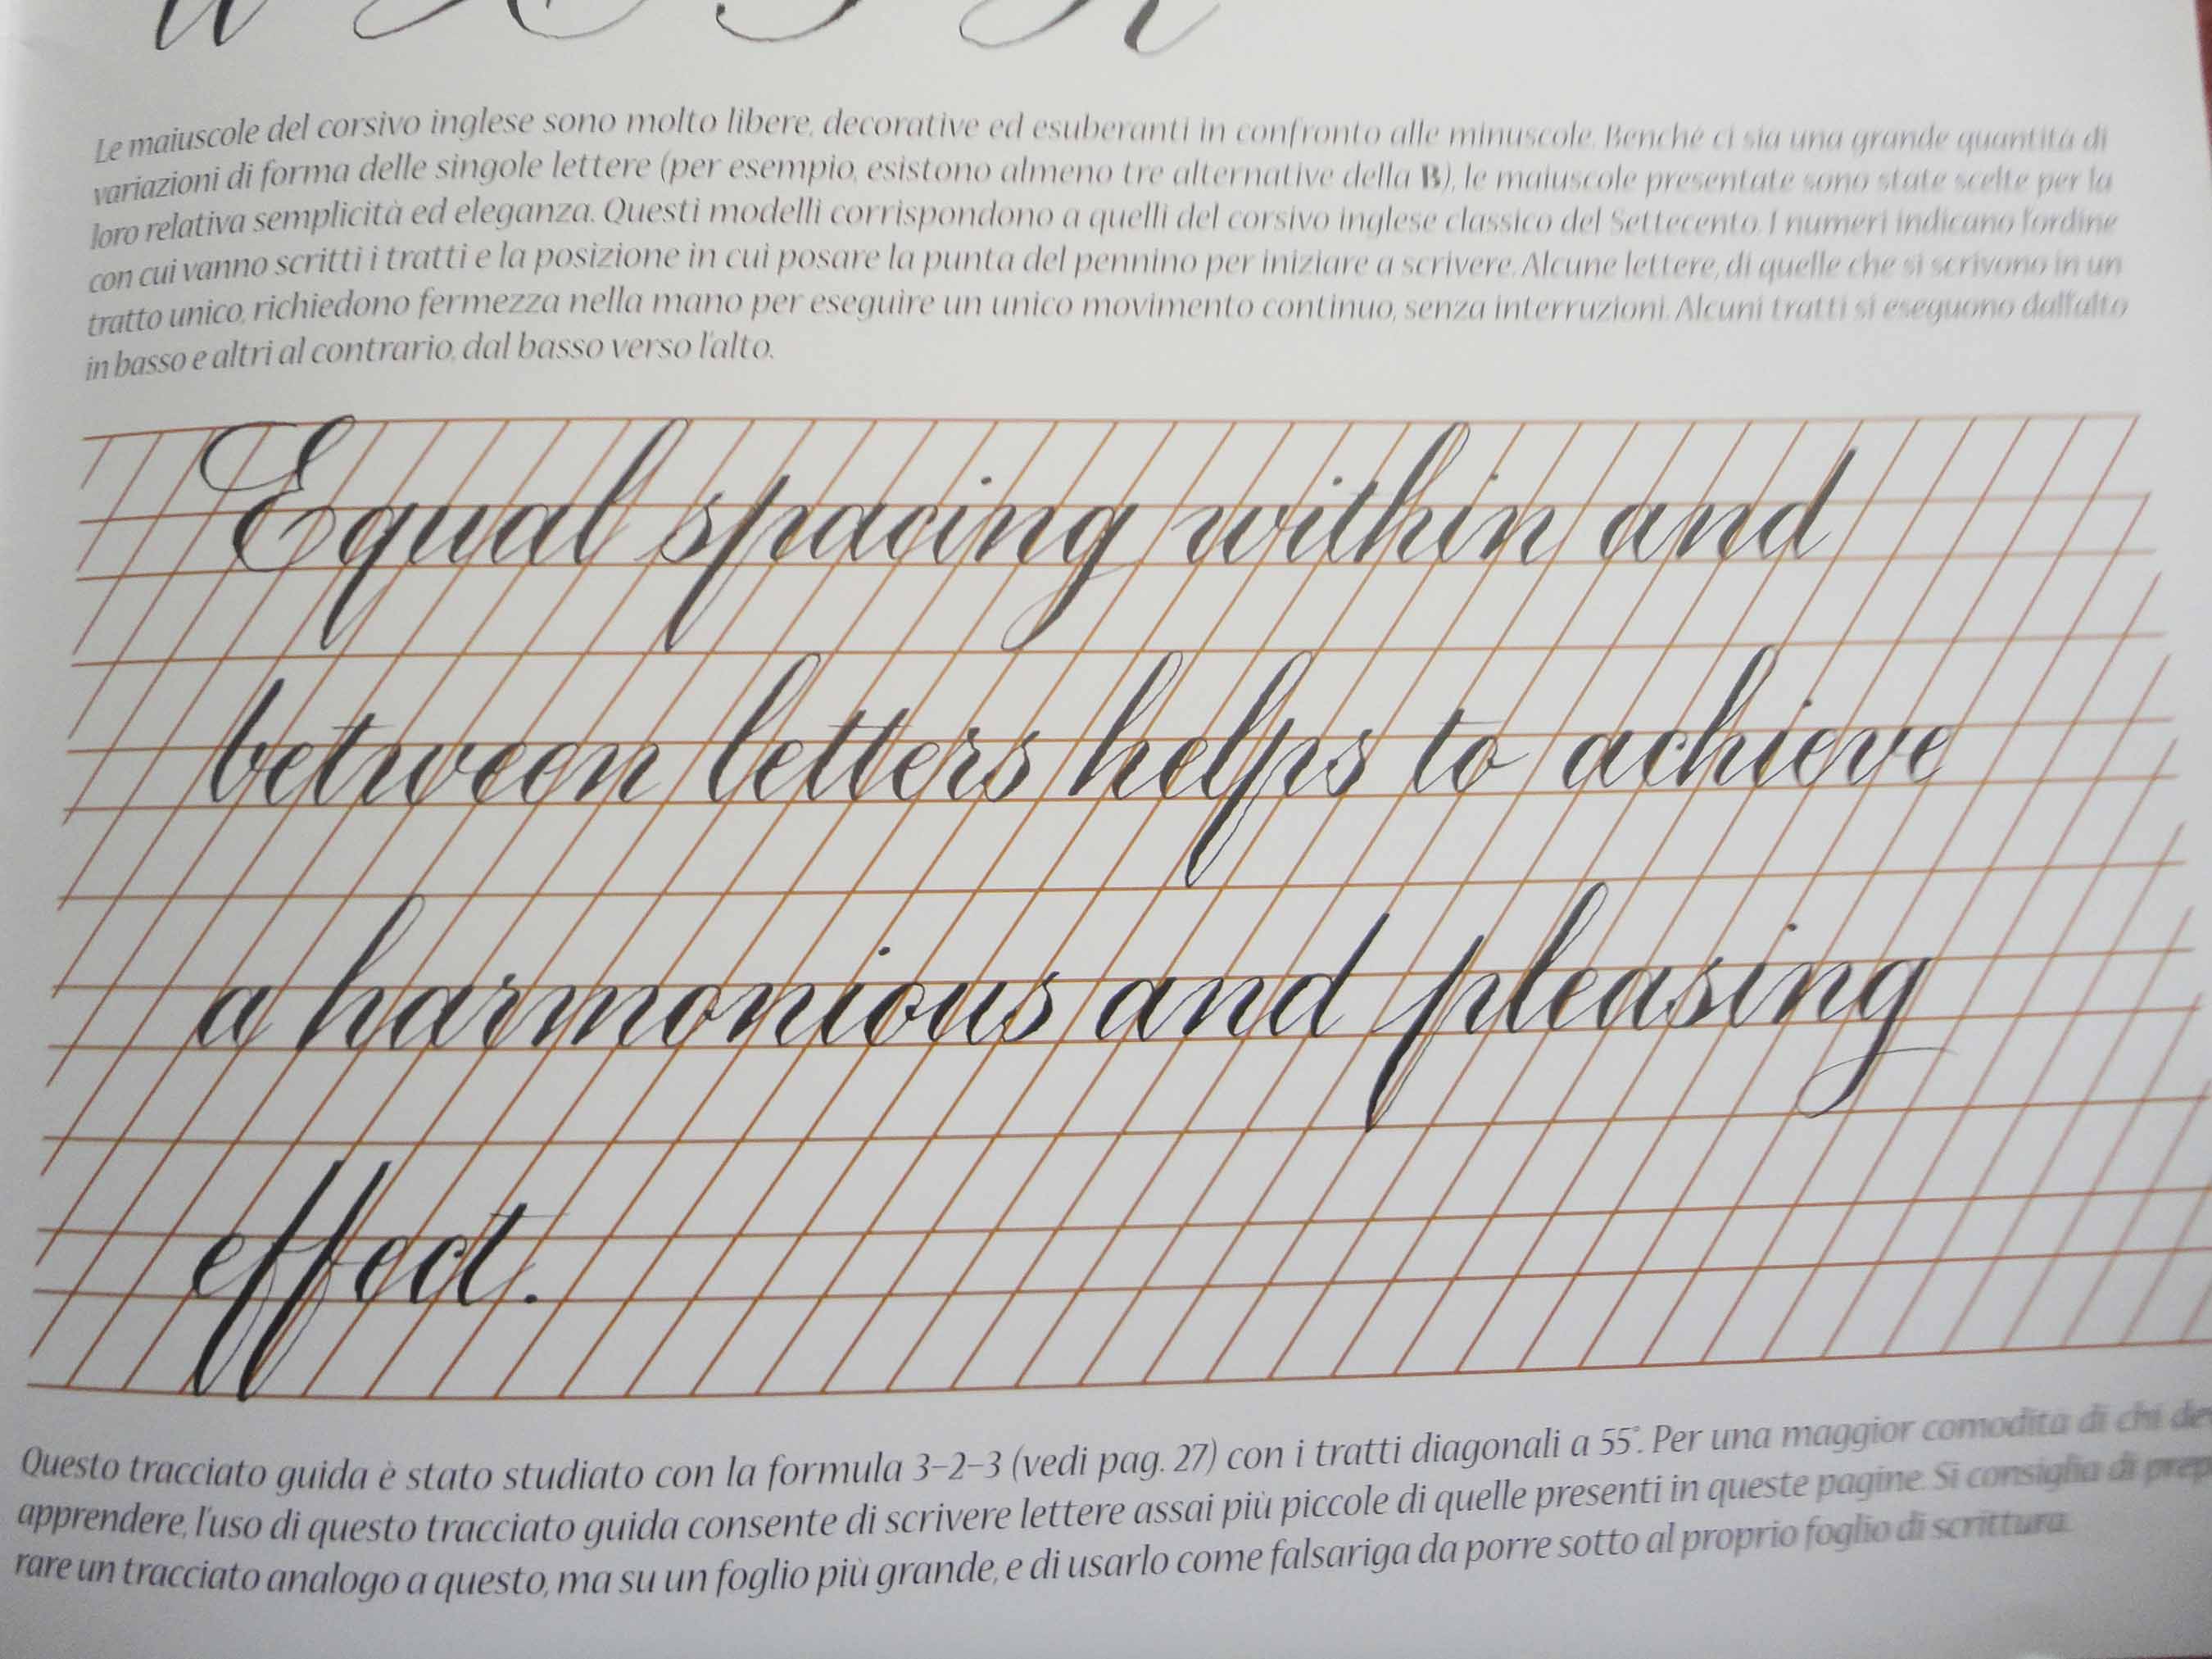 Le maiuscole del corsivo inglese sono molto libere, decorative ed esuberanti in confronto alle minuscole. Benché ci sia una grande quantità di
variazioni di forma delle singole lettere (per esempio, esistono almeno tre alternative della B), le maiuscole presentate sono state scelte per la
loro relativa semplicità ed eleganza. Questi modelli corrispondono a quelli del corsivo inglese classico del Settecento. I numeri indicano l'ordine
con cui vanno scritti i tratti e la posizione in cui posare la punta del pennino per iniziare a scrivere. Alcune lettere, di quelle che si scrivono in un
tratto unico, richiedono fermezza nella mano per eseguire un unico movimento continuo, senza interruzioni. Alcuni tratti si eseguono dall'alto
in basso e altri al contrario, dal basso verso l'alto.
Equal spacing within and
between letters helps to achieve
a harmonious and pleasing
effect.
Questo tracciato guida è stato studiato con la formula 3-2-3 (vedi pag. 27) con i tratti diagonali a 55°. Per una maggior comodità di chi
apprendere, l'uso di questo tracciato guida consente di scrivere lettere assai più piccole di quelle presenti in queste pagine. Si consiglia di
rare un tracciato analogo a questo, ma su un foglio più grande, e di usarlo come falsariga da porre sotto al proprio foglio di scrittura.